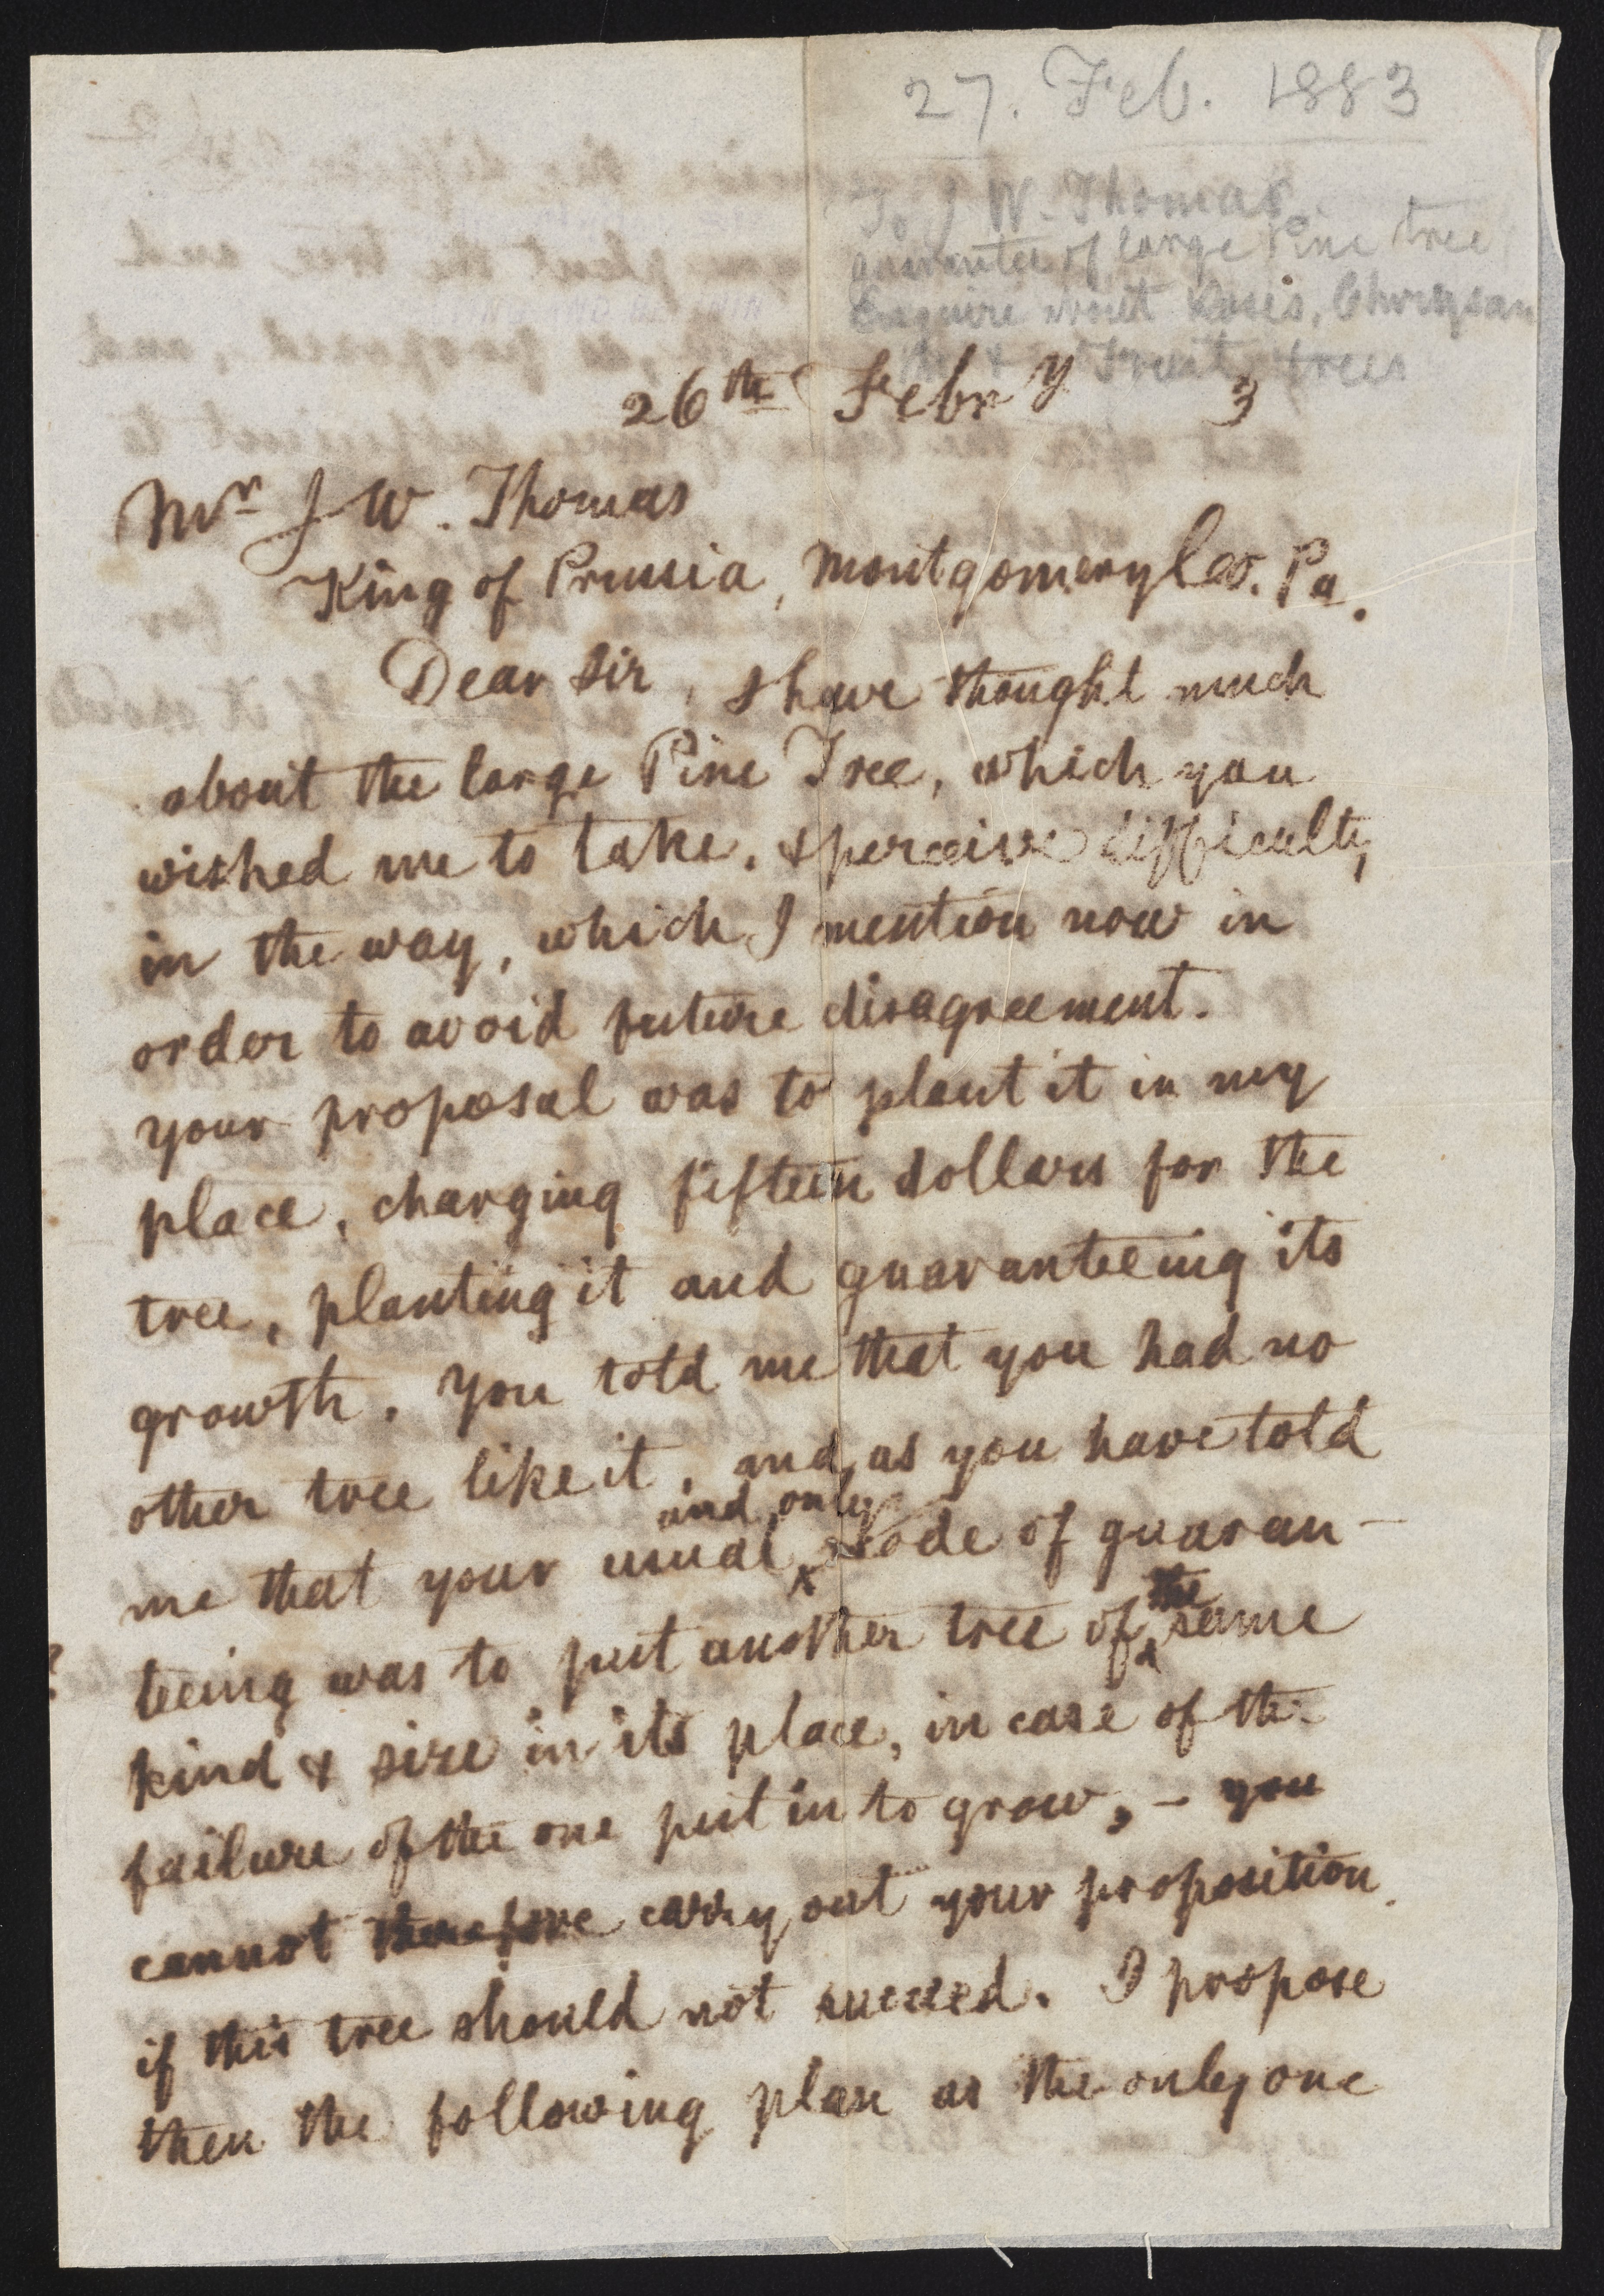 27. Feb. 1883
To J W. Thomas
guarantee of large Pine tree
Enquire about Roses, Chrysan
& Fruit trees
26th Febry 3
Mr J W. Thomas
King of Prussia, Montgomery Co. Pa.
Dear Sir, I have thought much
about the large Pine Tree, which you
wished me to take, & perceive difficulty
in the way, which I mention now in
order to avoid future disagreement.
your proposal was to plant it in my
place, charging fifteen dollars for the
tree, planting it and guaranteeing its
growth. You told me that you had no
other tree like it, and, as you have told
and only
me that your usual mode of guaran-
the
teeing was to put another tree of same
kind & size in its place, in case of the
failure of the one put in to grow, - you
cannot therefore carry out your proposition
if this tree should not succeed. I propose
then the following plan as the only one